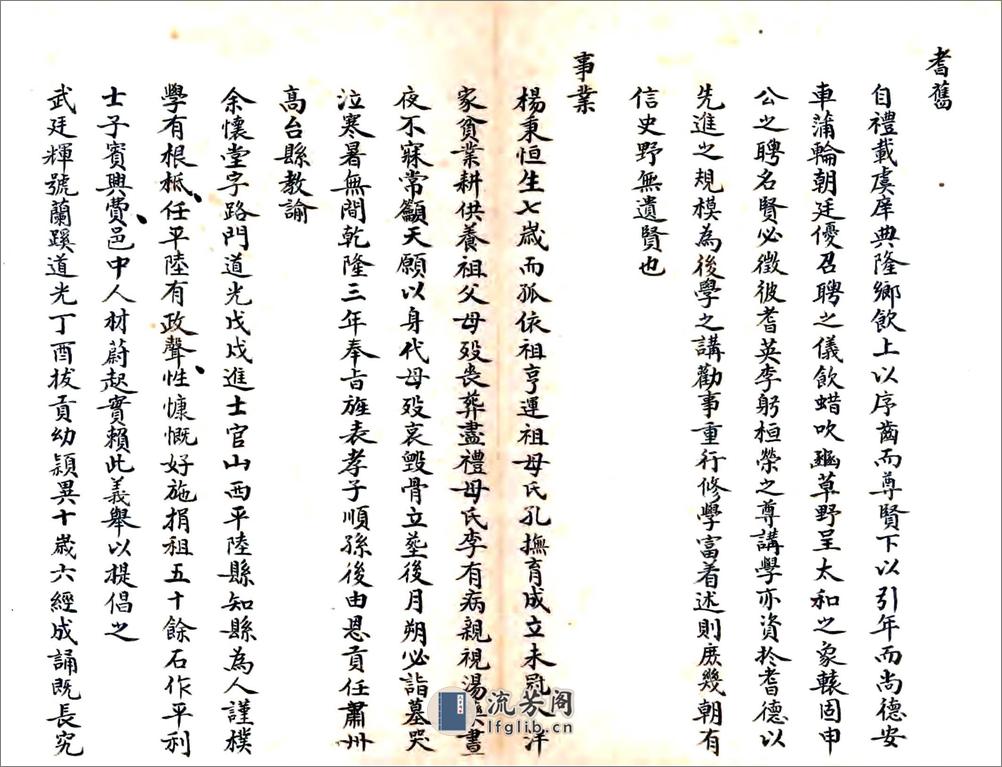 耆舊
自禮載虞庠典隆鄉飲上以序齒而尊賢下以引年而尚德安
車蒲輪朝廷優召聘之儀飲蜡吹豳草野呈太和之象轅固申
公之聘名賢必徵彼耆英李躬桓榮之尊講學亦資於耆德以
先進之規模為後學之講勸事重行修學富着述則庶幾朝有
信史野無遺賢也
事業
楊秉恒生七歲而孤依祖亨運祖母氏孔撫育成立未冠入泮
家貧業耕供養祖父母歿喪葬盡禮母氏李有病親視湯藥晝
夜不寐常籲天願以身代母歿哀毀骨立塟後月朔必詣墓哭
泣寒暑無間乾隆三年奉旨旌表孝子順孫後由恩貢任肅州
高台縣教諭
余懷堂字路門道光戊戌進士官山西平陸縣知縣為人謹樸
學有根柢、任平陸有政聲、性慷慨好施捐租五十餘石作平利
士子賓興費、邑中人材蔚起實賴此義舉以提倡之
武廷輝號蘭蹊道光丁酉拔貢幼穎異十歲六經成誦既長究
流芳阁
lfglib.cn